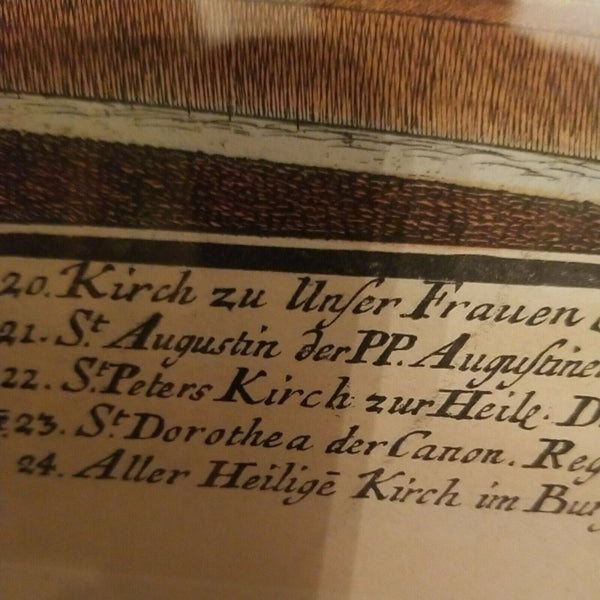 20. Kirch zu Unſer Frauen
21. S.t Auguſtin der PP. Auguſtiner
22. S.t Peters Kirch zur Heil.
23. S.t Dorothea der Canon. Reg
24. Aller Heiligē Kirch im Burg